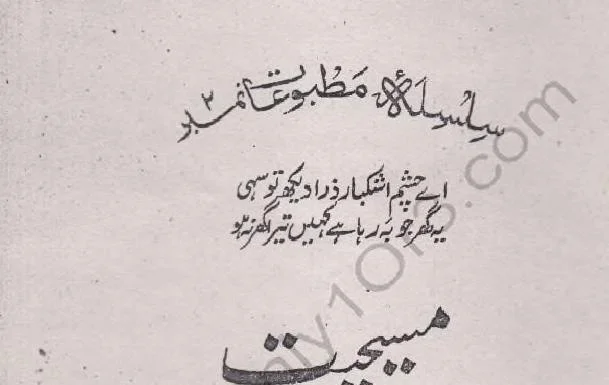 سلسلۂ مطبوعات نمبر ۲
اے چشم اشکبار ذرا دیکھ تو سہی
یہ گھر جو بہ رہا ہے کہیں تیرا گھر نہ ہو
مسیحیت
only1Or3.com